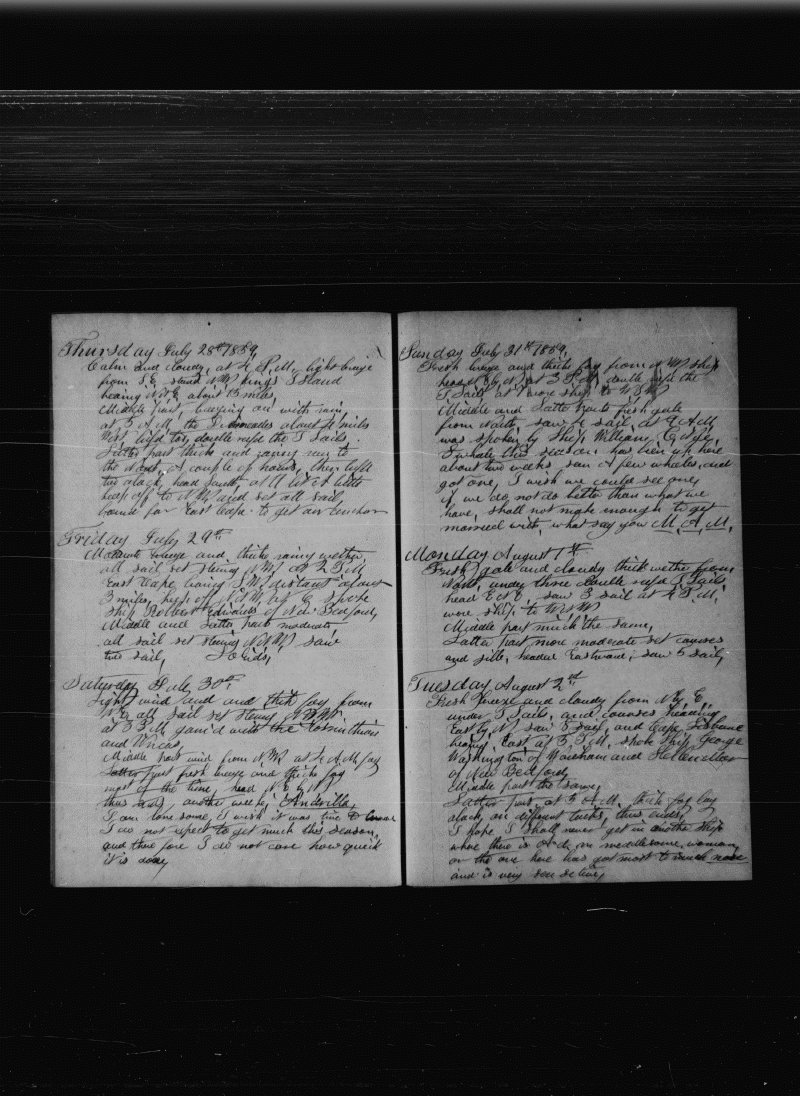 Thursday July 28th 1859,
Calm and cloudy, at 4 P.M. light breeze
from S.E. stood NW kings Island
bearing NNE about 15 miles,
Middle part, bearing on with rain,
at 3 A.M. the Diomades about 4 miles
West, luf'd too, double reef'd the T Sails.
Latter part thick and raining run to
the West, a couple of hours, then luff'd
too aback, head South at 11 let it little
keep off to NW and set all sail,
bound for East Cape to get an anchor
Friday July 29th
Moderate breeze and thick, rainy wether
all sail set steering at 2 P.M.
East Cape bearing SW, distant about
3 miles, kept off spoke
ship Robert Edwards of New Bedford,
Middle and Latter part moderate
all sail set steering NNW, saw
two sail,
Saturday July 30th
Light wind and and thick fog from
N.E. all sail set steering NNW
at 3 P.M. gam'd with the Corinthians
and
Middle part wind from NW at 4 A.M. fog
Latter part fresh breeze and thick fog
most of the time, head N.E. by N
thus ends, another week,
I am lone some, I wish it was time to
I do not expect to get much this season,
and there fore I do not care how quick
it is
Sunday July 31st 1859,
Fresh breeze and thick fog from NW ship
head at 3 P.M. double reef'd the
T Sails at wore ship to WSW
Middle and Latter parts fresh gale
from North, saw 4 sail, at 9 A.M.
was spoken by Ship William
5 whales this season has been up here
about two weeks, saw A few whales, and
got one, I wish we could see one,
if we do, not do better than what we
have, shall not make enough to get
married with, what say you M. A. M.
Monday August 1st
Fresh gale and cloudy thick wether from
North, under three double reef'd T Sails
head saw 3 sail at 4 P.M.
wore ship to WNW
Middle part much the same,
Latter part more moderate set courses
and jibb, headed Eastward, saw 5 sail,
Tuesday August 2nd
Fresh breeze and cloudy from N by E
under T Sails, and courses heading
East by N saw 5 sail, and Cape Lisbune
bearing East at 3 P.M. spoke Ship George
Washington of Wareham and
of New Bedford,
Middle part the same,
Latter part, at 5 A.M. thick fog lay
aback, on different tacks, thus ends,
I hope I shall never get in another ship
whare there is such meddlesome woman,
as the one here has got most to much nose
and is very